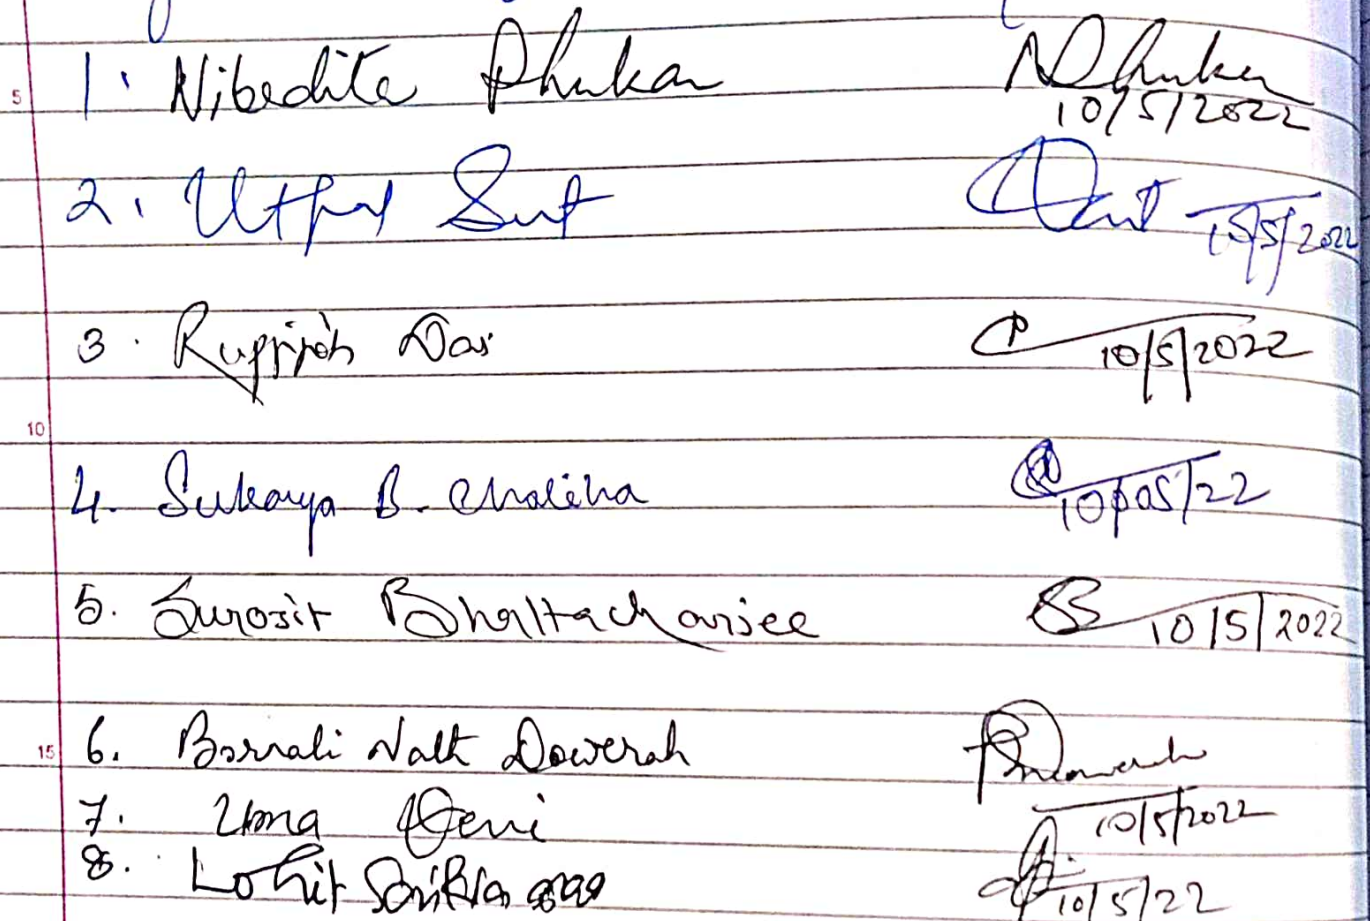 5
1. Nibedita Phukan NPhukan
10/5/2022
2. Utpal Sut 10/5/2022
3. Rupjyoti Das 10/5/2022
10
4. Sukanya B. Chaliha
10/05/22
5. Surosit Bhattacharjee 10/5/2022
15 6. Bornali Nath Dowerah
7. Uma Devi 10/5/2022
8. Lohit 10/5/22